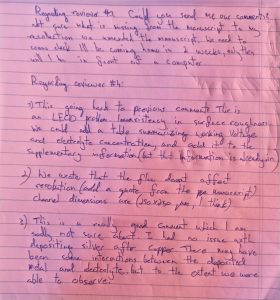 Regarding reviewer #1 Could you send me our comments
not sure what is missing from the manuscript to my
recollection we amended the manuscript. We need to
I'll be coming home in 2 weeks, only then
will I be in front of a computer
Regarding reviewer #4:
1) This going back to previous comments. The is
an problem inconsistency in surface roughness
We could add a table summarizing working voltage
and electrolyte concentrations and add it to the
supplementary information (but the information is already in
2) We wrote that the does not affect
resolution (add a quote from the manuscript)
channel dimensions are I think)
3) This is a really good comment which I am
sadly not sure about. I had no issue with
depositing silver after copper. There may have
been some interactions between the deposited
metal and electrolyte, but to the extent we were
able to observe.